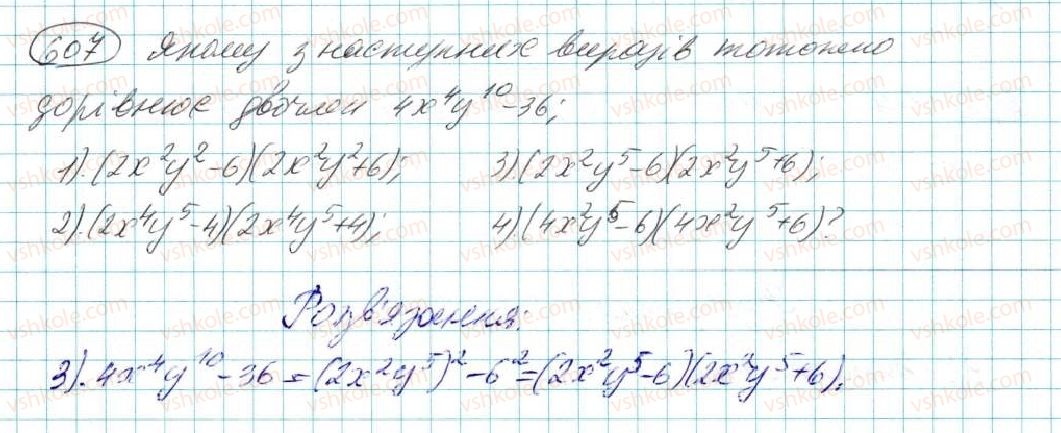 607 Якому з наступних виразів тотожно
дорівнює двочлен 4x⁴y¹⁰-36;
1).(2x²y²-6)(2x²y²+6); 3).(2x²y⁵-6)(2x²y⁵+6);
2).(2x⁴y⁵-4)(2x⁴y⁵+4); 4).(4x²y⁵-6)(4x²y⁵+6)?
Розв'язання:
3).4x⁴y¹⁰-36=(2x²y⁵)²-6²=(2x²y⁵-6)(2x²y⁵+6).
vshkole.com